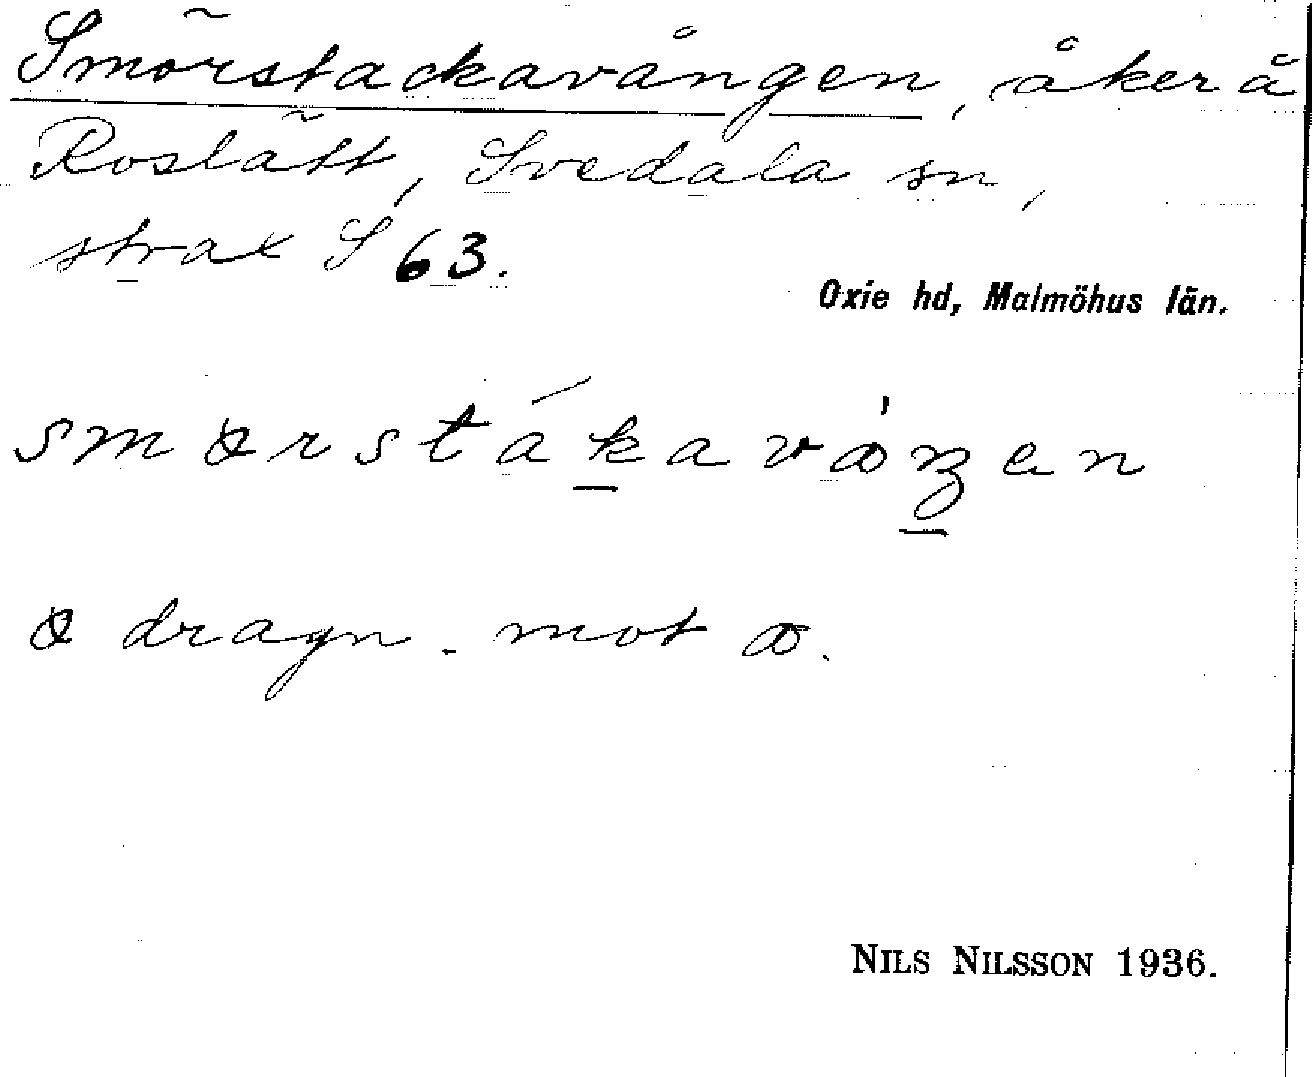 Smörstackavången, åker å
Roslätt, Svedala sn,
strax S 63.
Oxie hd, Malmöhus län.
smørstákavåŋen
ø dragn. mot ɷ.
NILS NILSSON 1936.